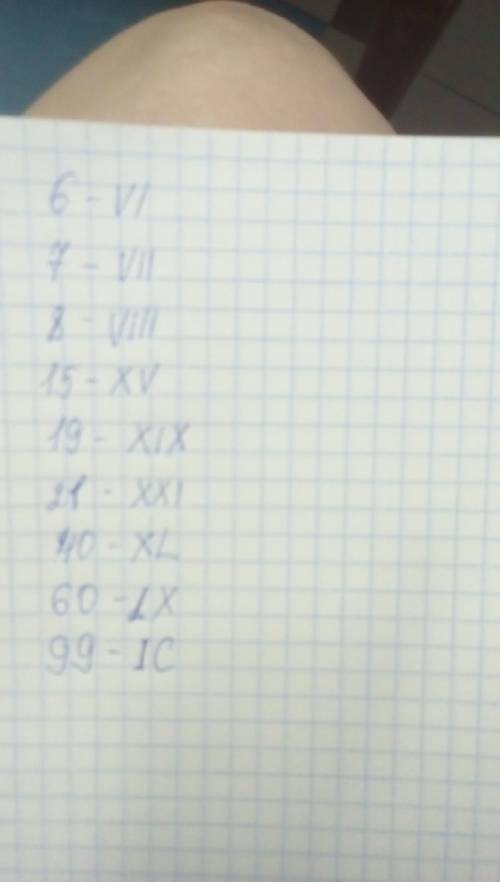 6 - VI
7 - VII
8 - VIII
15 - XV
19 - XIX
21 - XXI
40 - XL
60 - LX
99 - IC